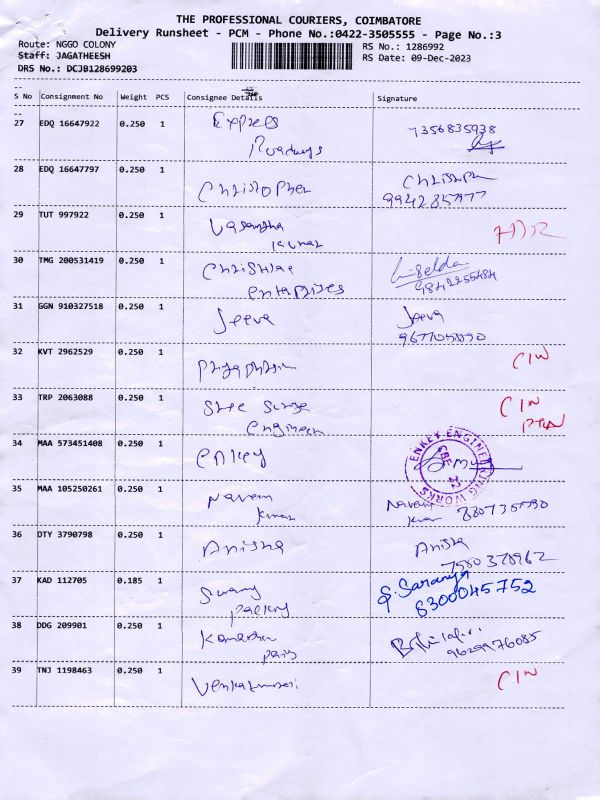 THE PROFESSIONAL COURIERS, COIMBATORE
Delivery Runsheet - PCM - Phone No.:0422-3505555 - Page No.:3
Route: NGGO COLONY
RS No.: 1286992
Staff: JAGATHEESH
RS Date: 09-Dec-2023
DRS No.: DCJB128699203
--
S No Consignment No Weight PCS Consignee Details Signature
--
27 EDQ 16647922 0.250 1 Express 7356835938
Roadways
28 EDQ 16647797 0.250 1 Christopher
29 TUT 997922 0.250 1 Vasantha
kumar
30 TMG 200531419 0.250 1
enterprises 9842255484
31 GGN 910327518 0.250 1 Jeeva Jeeva
32 KVT 2962529 0.250 1 CIN
33 TRP 2063088 0.250 1 Sree CIN
34 MAA 573451408 0.250 1 enkey ENKEY ENGINEERING WORKS
CBE 22
35 MAA 105250261 0.250 1 Naveen Naveen
kumar
36 OTY 3790798 0.250 1 Anisha Anisha
37 KAD 112705 0.185 1 Swamy S. Saranya
6300045752
38 DDG 209901 0.250 1
9629976085
39 TNJ 1198463 0.250 1 CIN